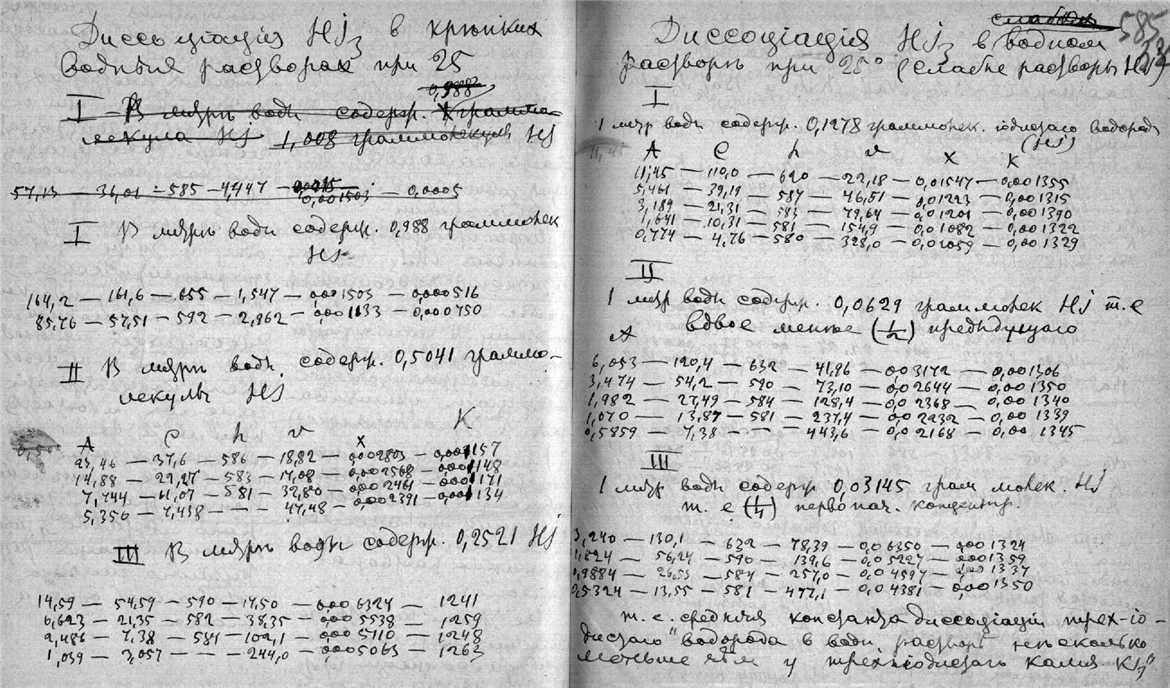 Диссоціація HJ₃ в крѣпких
водныхъ растворах при 25
0,988
I В литръ воды содерж. 1 граммо-
лекула HJ 1,008 граммолекул HJ
57,13 — 36,01 — 585 — 4,447 — 0,001503 — 0,0005
I В литръ воды содерж. 0,988 граммолек
HJ
164,2 — 161,6 — 655 — 1,547 — 0,001503 — 0,000516
85,76 — 57,51 — 592 — 2,962 — 0,001133 — 0,000750
II В литръ воды содерж. 0,5041 граммо-
лекулы HJ
A C h v x K
23,46 — 37,6 — 586 — 18,82 — 0,002803 — 0,001157
14,88 — 22,27 — 583 — 17,08 — 0,002568 — 0,001148
7,744 — 11,07 — 581 — 32,80 — 0,002461 — 0,001171
5,356 — 7,438 — — 47,48 — 0,002391 — 0,001134
III В литръ воды содерж. 0,2521 HJ
14,59 — 54,59 — 590 — 17,50 — 0,006324 — 1241
6,623 — 21,35 — 582 — 38,35 — 0,005538 — 1259
2,486 — 7,38 — 581 — 102,1 — 0,005110 — 1248
1,039 — 3,057 — — 244,0 — 0,005063 — 1263
слабых
585
Диссоціація HJ₃ в водном
растворѣ при 25° (слабые растворы HJ)
I
1 литр воды содерж. 0,1278 граммолек. іодистаго водорода
(HJ)
A C h v x K
11,45 — 110,0 — 620 — 22,18 — 0,01547 — 0,001355
5,461 — 39,19 — 587 — 46,51 — 0,01223 — 0,001315
3,189 — 21,31 — 583 — 79,64 — 0,01201 — 0,001390
1,641 — 10,31 — 581 — 154,9 — 0,01082 — 0,001322
0,774 — 4,76 — 580 — 328,0 — 0,01059 — 0,001329
II
1 литр воды содерж. 0,0629 граммолек HJ т.е
вдвое менѣе (1/2) предыдущаго
A
6,053 — 120,4 — 632 — 41,96 — 0,03172 — 0,001306
3,474 — 54,2 — 590 — 73,10 — 0,02644 — 0,001350
1,982 — 27,49 — 584 — 128,4 — 0,02368 — 0,001340
1,070 — 13,87 — 581 — 237,4 — 0,02232 — 0,001339
0,5859 — 7,38 — — 443,6 — 0,02168 — 0,001345
III
1 литр воды содерж 0,03145 грам молек. HJ
т. е (1/4) первонач. концентр.
3,240 — 130,1 — 632 — 78,39 — 0,06350 — 0,001324
1,824 — 56,24 — 590 — 139,6 — 0,05227 — 0,001359
0,9884 — 26,53 — 584 — 257,0 — 0,04597 — 0,001337
0,5324 — 13,55 — 581 — 477,1 — 0,04381 — 0,001350
т. е. средняя константа диссоціаціи трех-іо-
дистаго водорода в водн. растворѣ нѣсколько
меньше чѣм у трехіодистаго калия KJ₃